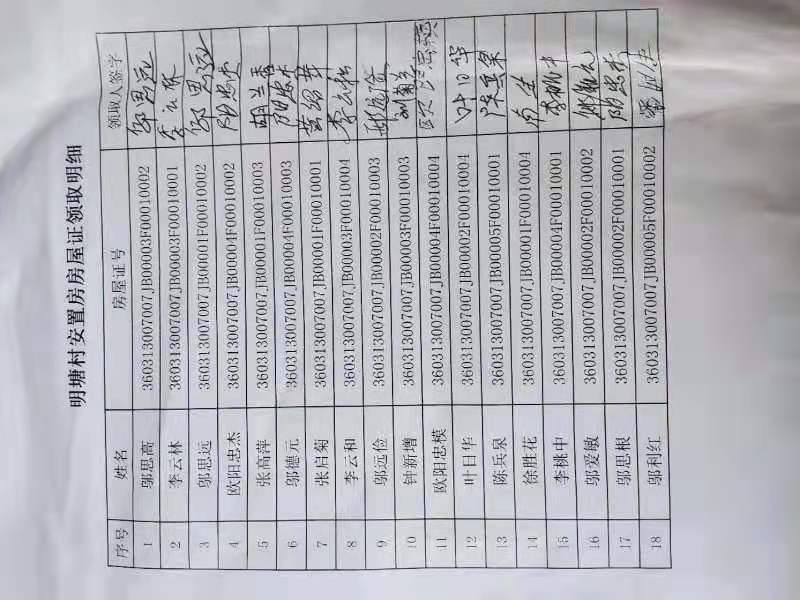 明塘村安置房房屋证领取明细
序号 姓名 房屋证号 领取人签字
1 邬思高 360313007007JB00003F00010002 邬思远
2 李云林 360313007007JB00003F00010001 李云林
3 邬思远 360313007007JB00001F00010002 邬思远
4 欧阳忠杰 360313007007JB00004F00010002
5 张高萍 360313007007JB00001F00010003 胡兰香
6 邬德元 360313007007JB00004F00010003
7 张启菊 360313007007JB00001F00010001
8 李云和 360313007007JB00003F00010004 李云和
9 邬远俭 360313007007JB00002F00010003
10 钟新增 360313007007JB00003F00010003 刘菊兰
11 欧阳忠模 360313007007JB00004F00010004
12 叶日华 360313007007JB00002F00010004 叶日华
13 陈兵泉 360313007007JB00005F00010001
14 徐胜花 360313007007JB00001F00010004
15 李桃中 360313007007JB00004F00010001 李桃中
16 邬爱敏 360313007007JB00002F00010002
17 邬思根 360313007007JB00002F00010001
18 邬利红 360313007007JB00005F00010002